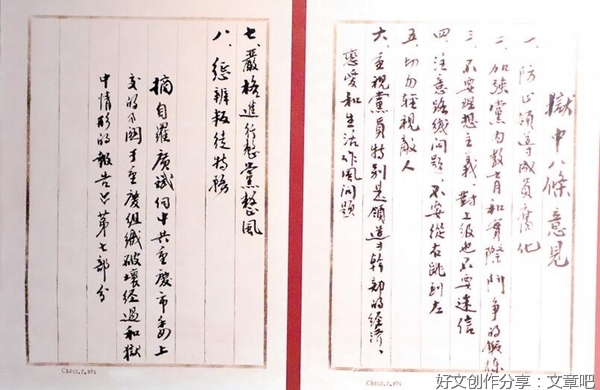 獄中八條意見
一、防止領導成員腐化
二、加強黨内教育和實際鬥争的鍛煉
三、不要理想主義、對上級也不要迷信
四、注意路线問題、不要從右跳到左
五、切勿輕視敵人
六、重視黨員特别是領導幹部的經濟、
戀愛和生活作風問題
七、嚴格進行整黨整風
八、懲辦叛徒特務
摘自羅廣斌向中共重慶市委上
交的《關于重慶組織破壞經過和獄
中情形的報告》第七部分
好文创作分享：文章吧